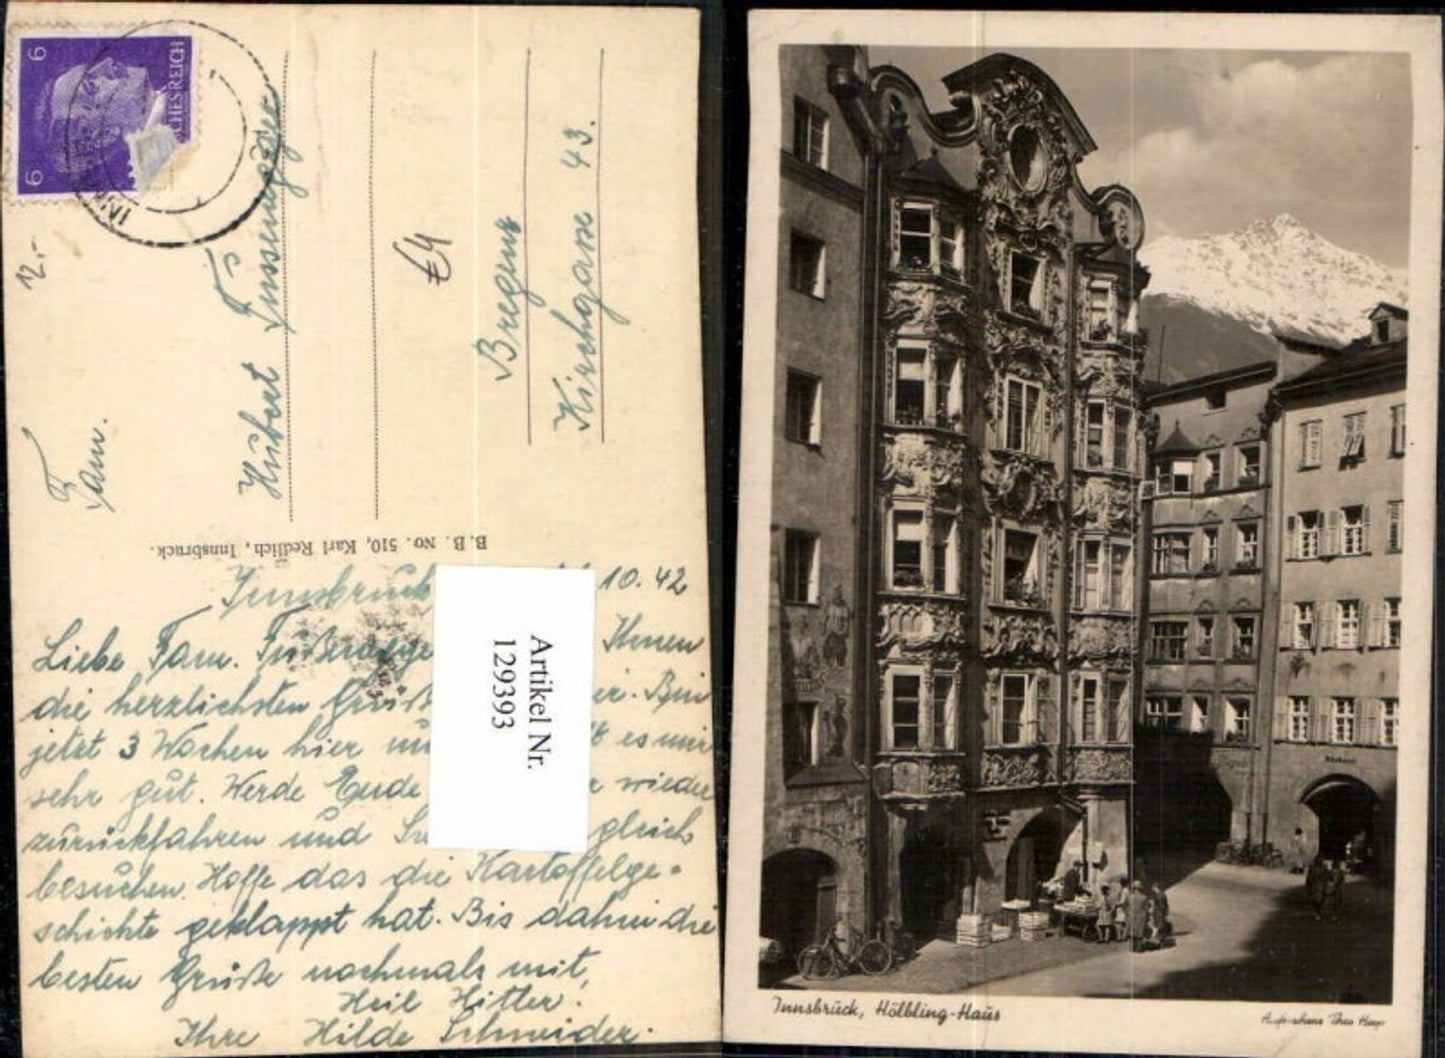 6
6
SCHES REICH
12.-
€4
Fam.
Hubert
Bregenz
Kirchgasse 43.
B.B. No. 510, Karl Redlich, Innsbruck.
Innsbruck 10. 42
Liebe Fam. Ihnen
die herzlichsten Grüße. Bin
jetzt 3 Wochen hier und es mir
sehr gut. Werde Ende wieder
zurückfahren und gleich
besuchen. Hoffe das die Kartoffelge-
schichte geklappt hat. Bis dahin die
besten Grüße nochmals mit,
Heil Hitler.
Ihre Hilde Schneider.
Artikel Nr.
129393
Innsbruck, Hölbling-Haus
Aufnahme Theo